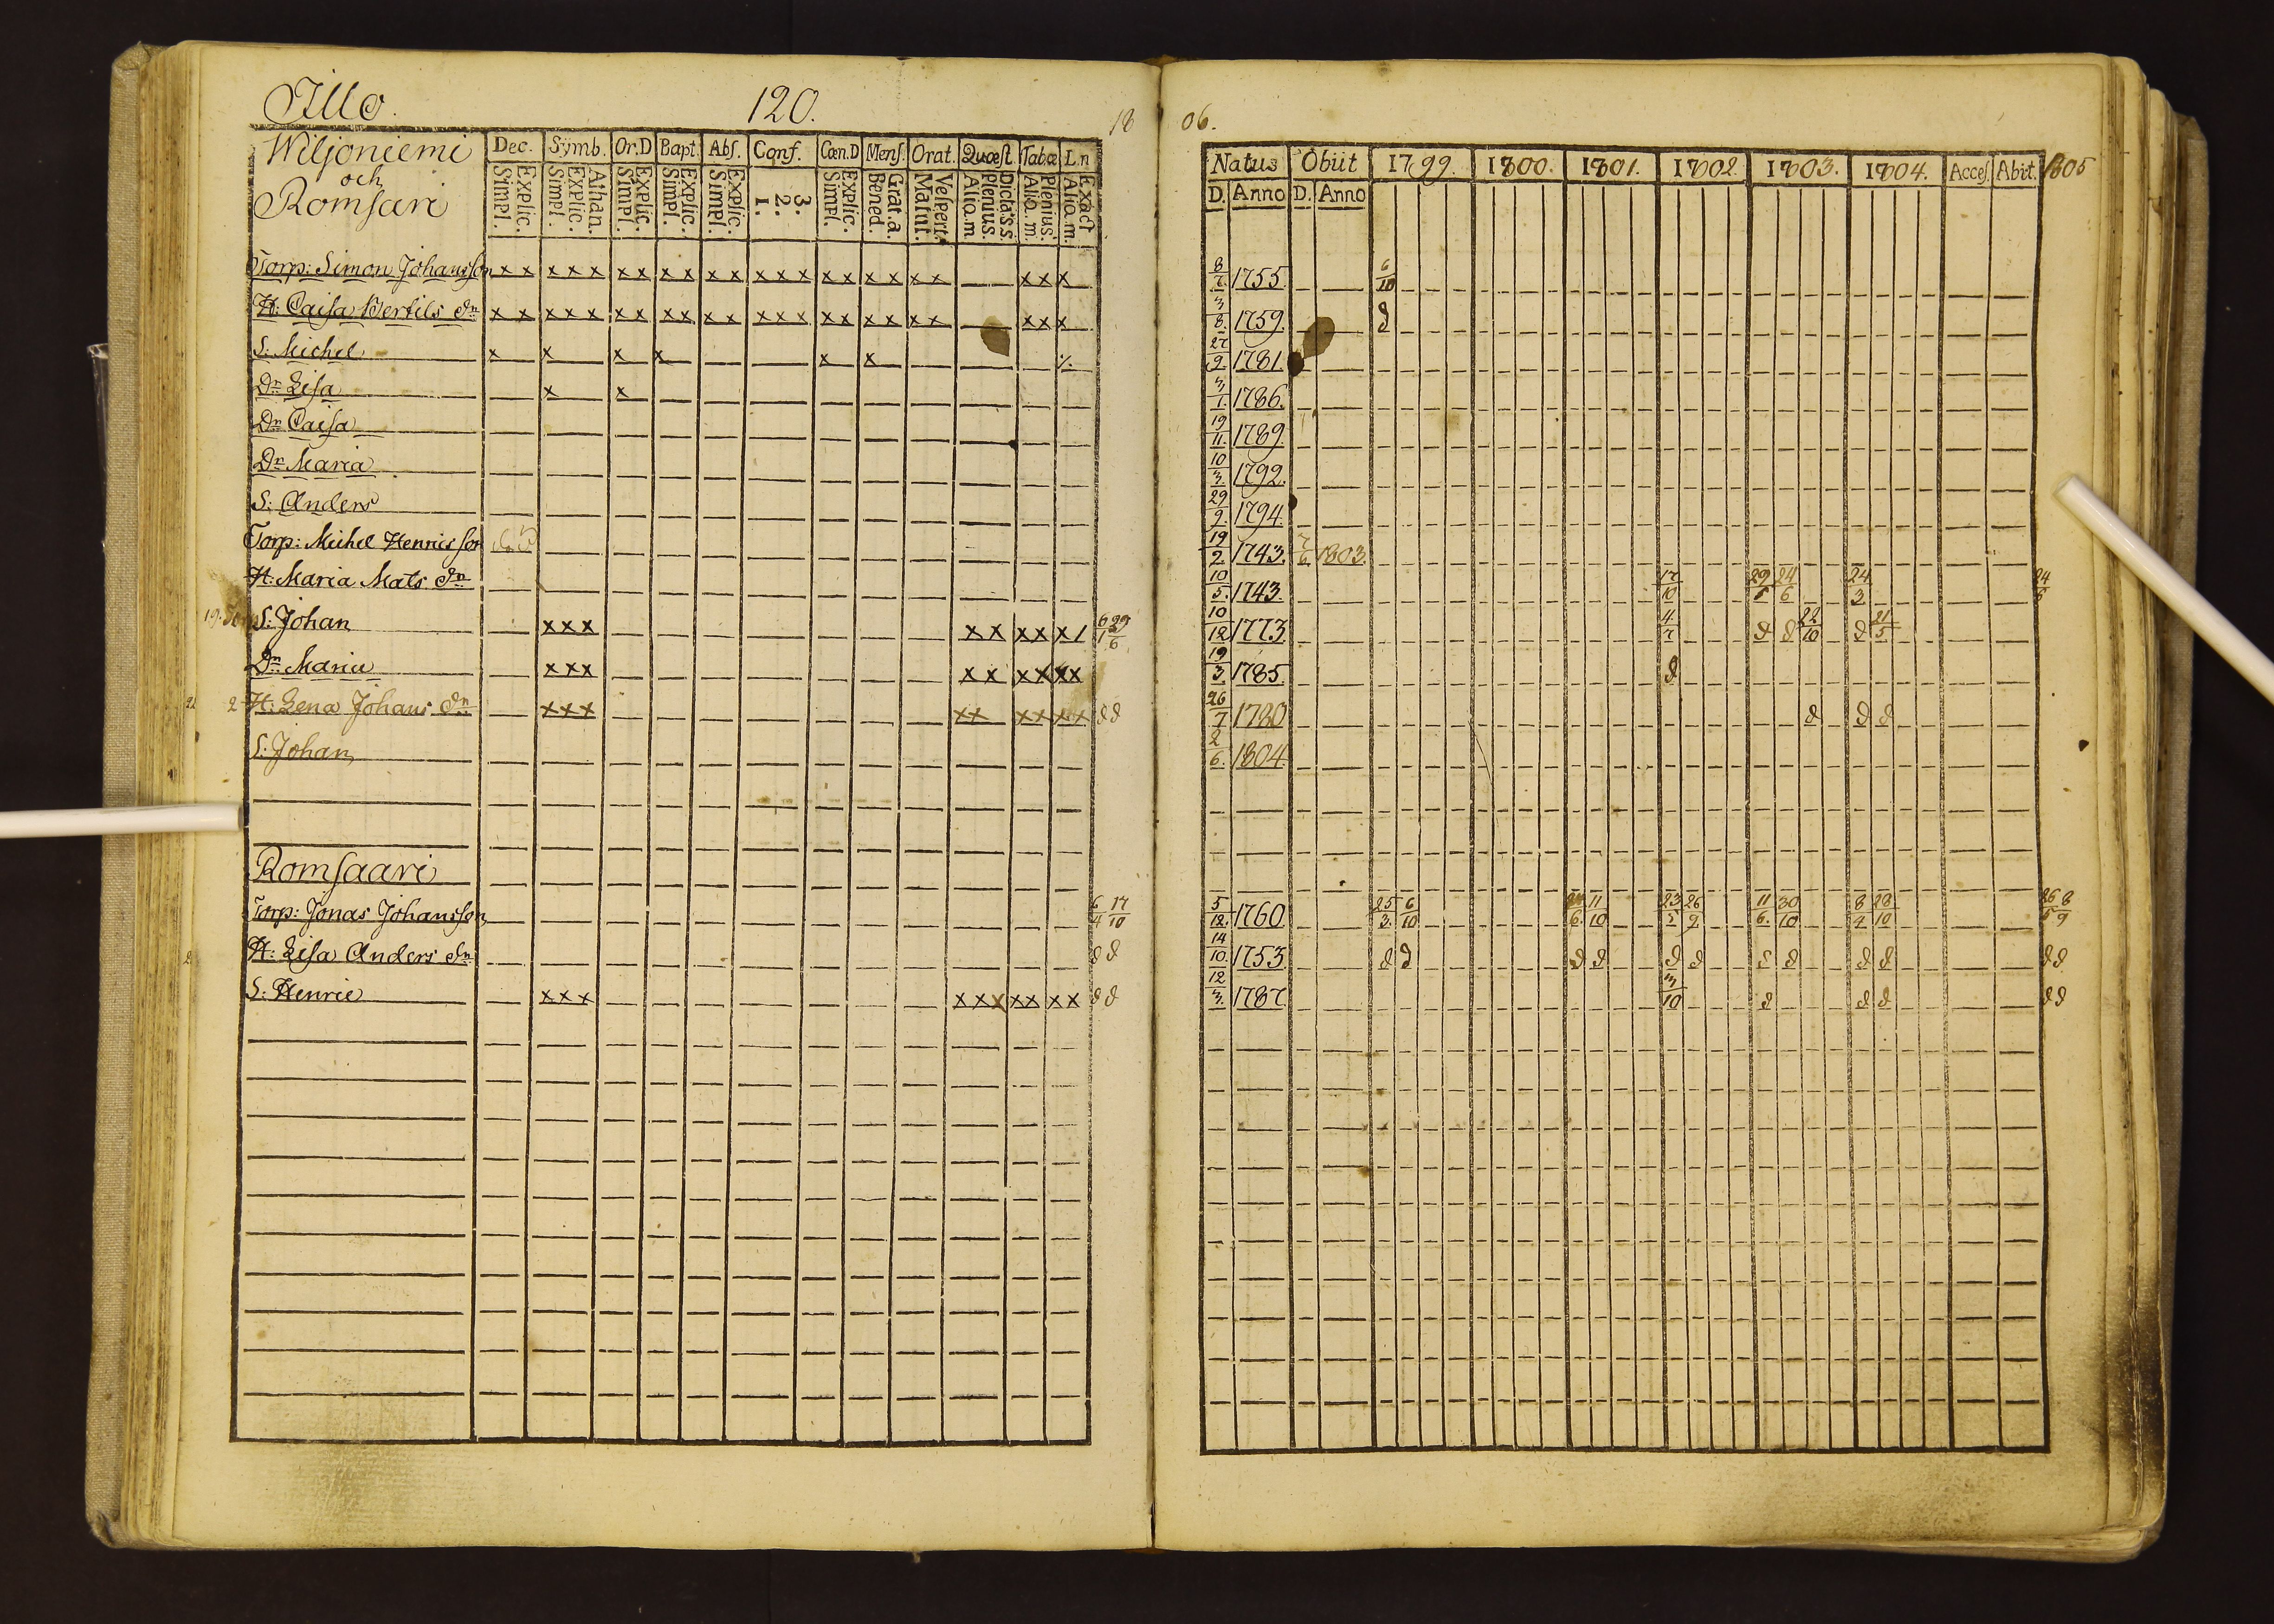 Jllo. 120. 18 06.
Wiljoniemi
och
Romsari
Dec. Symb. Or.D Bapt. Abs. Conf. Cœn.D Mens. Orat. Quæst Tabæ L.n
Simpl. Explic. Simpl. Explic. Athan. Simpl. Explic. Simpl. Explic. Simpl. Explic. 1. 2. 3. Simpl. Explic. Bened. Grat.a. Matut. Vespert. Alio.m Plenius. Dicta s.s. Alio.m. Plenius. Alio.m. Exact
Natus Obiit 1799. 1800. 1801. 1802. 1803. 1804. Acces. Abit. 1805
D. Anno D. Anno
Torp: Simon Johansson x x x x x x x x x x x x x x x x x x x x x x x x 8/7. 1755. 6/10
H: Caisa Bertils dr x x x x x x x x x x x x x x x x x x x x x x x x 3/8. 1759. d
S: Michel x x x x x x ⁒ 27/9. 1781.
Dr Lisa x x 3/1. 1786.
Dr Caisa 19/11. 1789.
Dr Maria 10/3. 1792.
S: Anders 29/9. 1794.
Torp: Michel Henricsson 19/2. 1743. 7/6. 1803.
H: Maria Mats dr 10/5. 1743. 17/10 29/5 24/6 24/3 24/6
S: Johan x x x x x x x x / 6/1 29/6 10/12 1773. 4/7 d d 22/10 d 21/5
Dr Maria x x x x x x x x x 19/3. 1785. d
2 H: Lena Johans dr x x x x x x x x x d d 26/7 1780 d d d
S: Johan 2/6. 1804.
Romsaari
Torp: Jonas Johansson 6/4 17/10 5/12. 1760. 25/3. 6/10 11/10 23/5 26/9 11/6. 30/10 8/4 28/10 26/5 8/9
H: Lisa Anders dr d d 14/10 1753. d d d d d d d d d d d d
S: Henric x x x x x x x x x x d d 12/3. 1787. 3/10 d d d d d